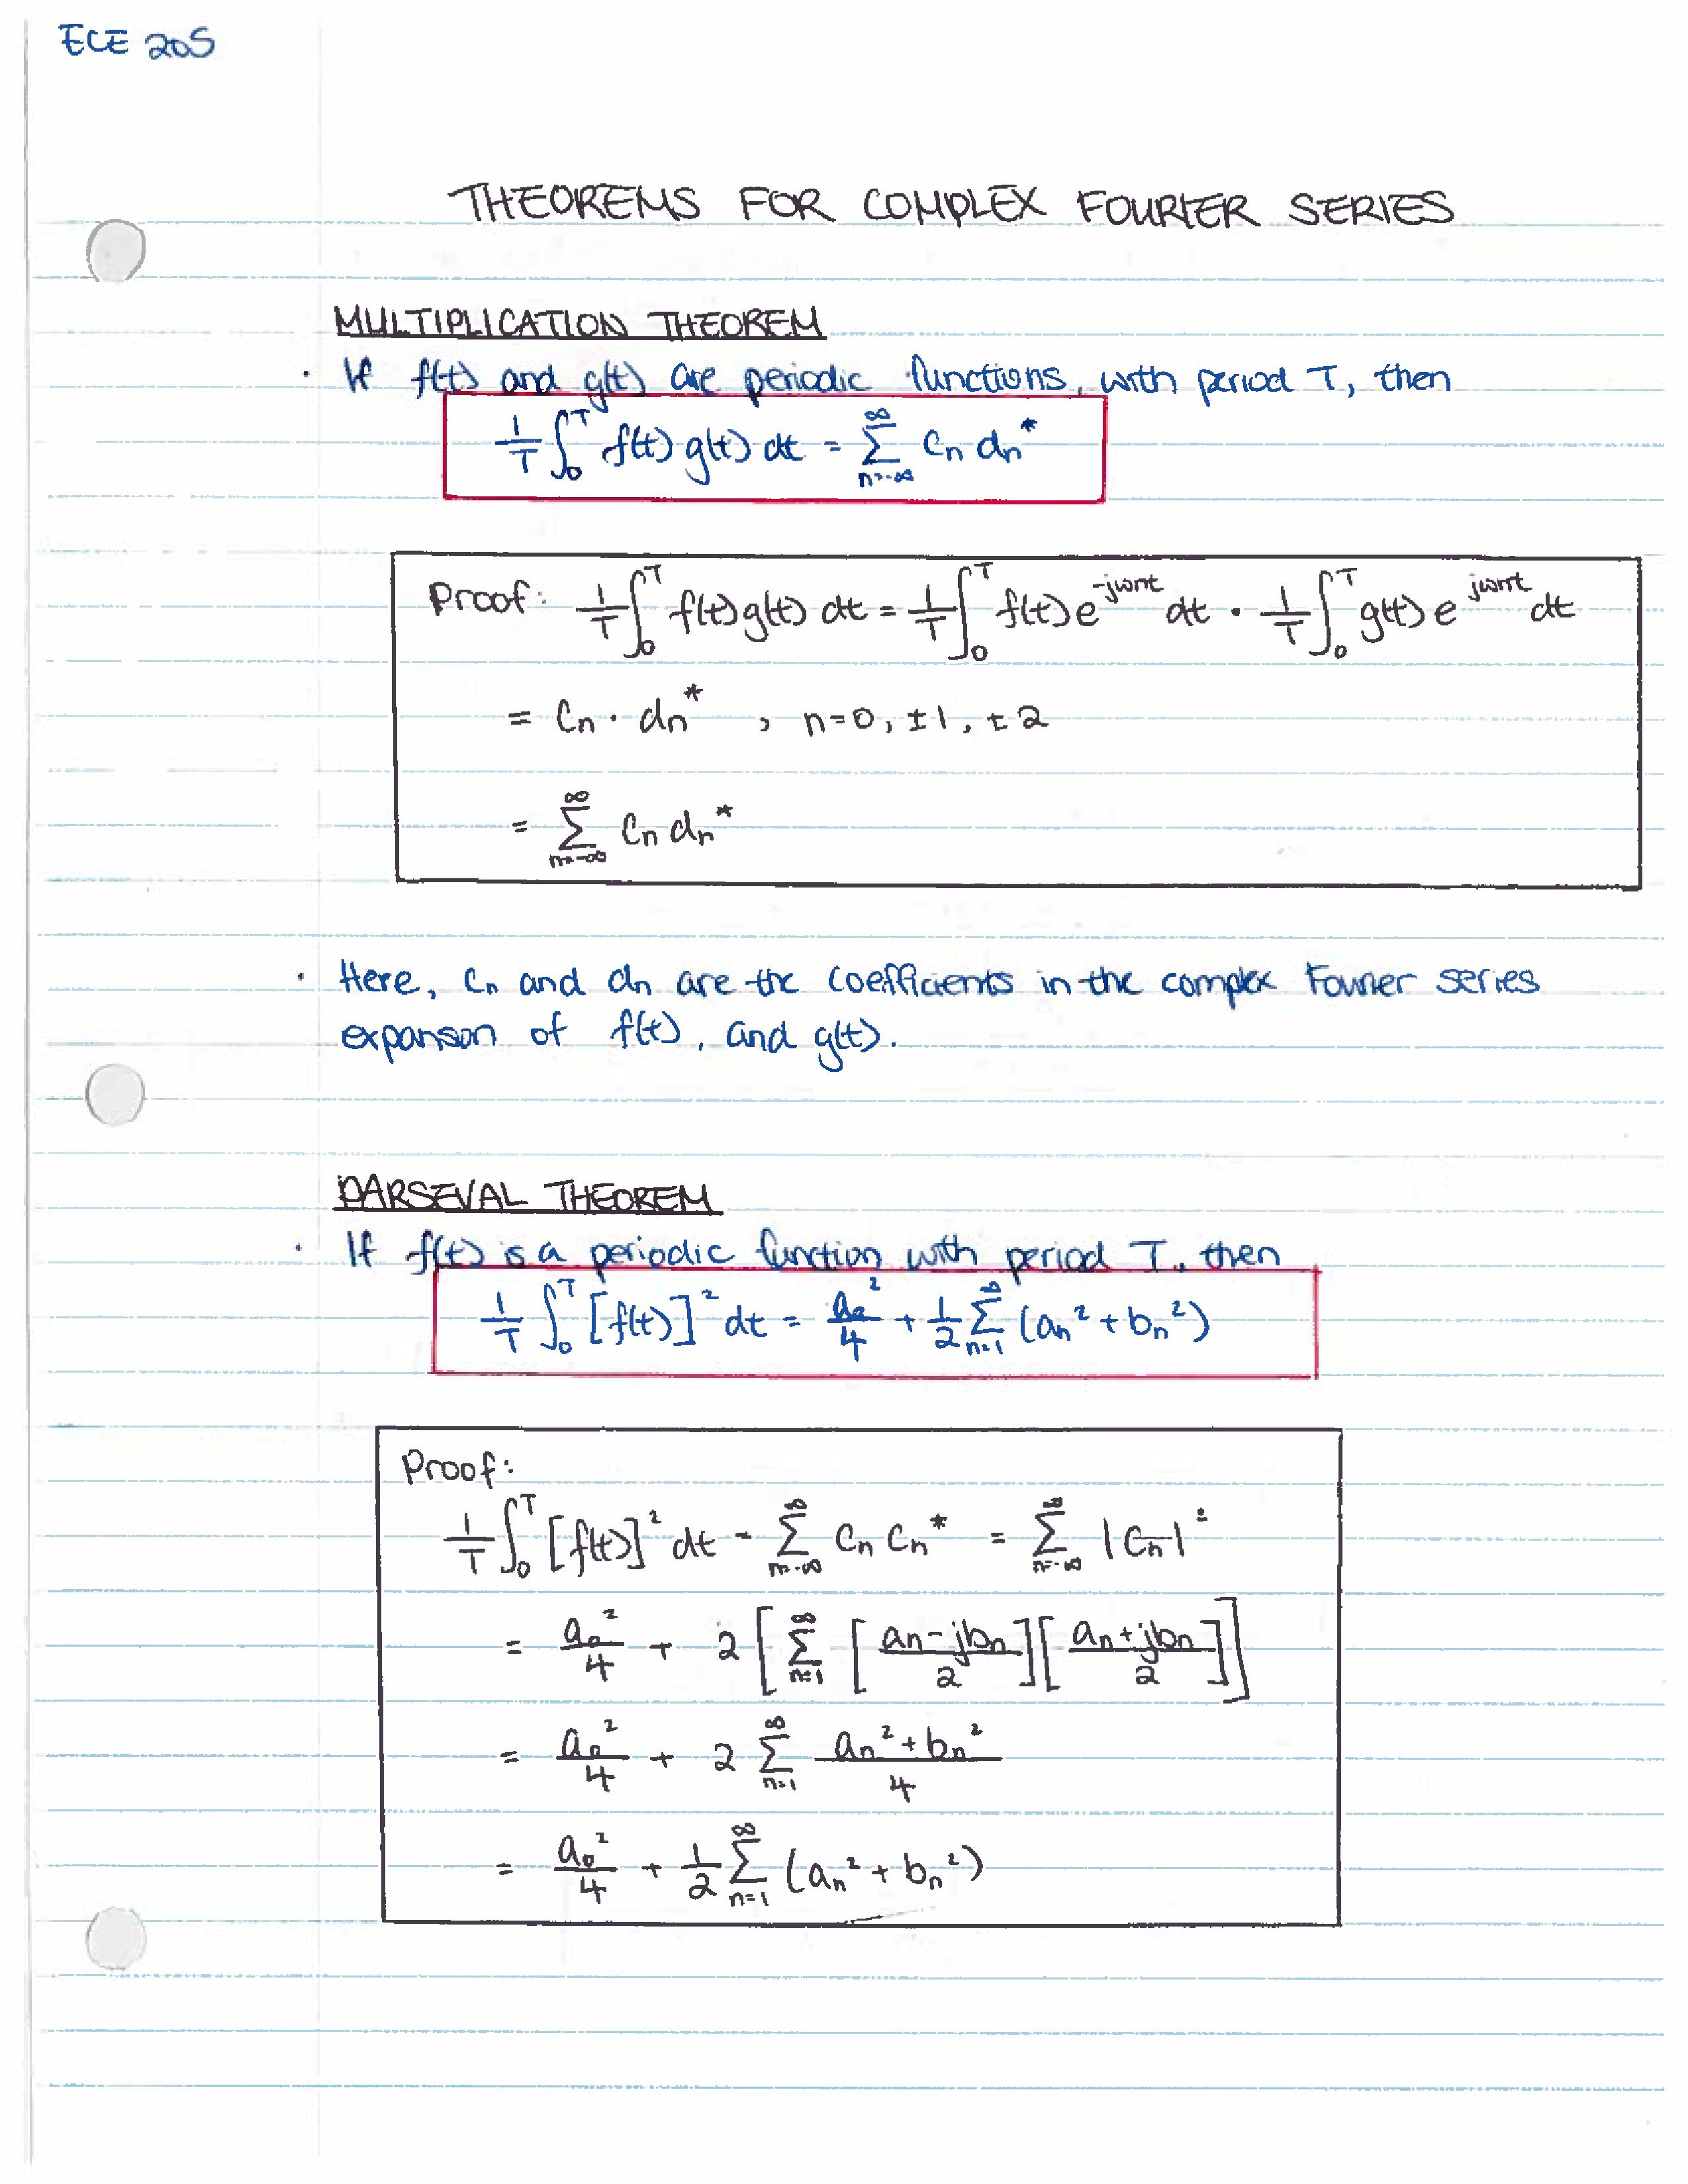 ECE 205
THEOREMS FOR COMPLEX FOURIER SERIES
MULTIPLICATION THEOREM
· If f(t) and g(t) are periodic functions, with period T, then
1/T ∫₀ᵀ f(t) g(t) dt = ∑_{n=-∞}^{∞} Cn dn*
Proof: 1/T ∫₀ᵀ f(t) g(t) dt = 1/T ∫₀ᵀ f(t) e^{-jωnt} dt · 1/T ∫₀ᵀ g(t) e^{jωnt} dt
= Cn · dn* , n=0, ±1, ±2
= ∑_{n=-∞}^{∞} Cn dn*
· Here, Cn and dn are the coefficients in the complex Fourier series
expansion of f(t), and g(t).
PARSEVAL THEOREM
· If f(t) is a periodic function with period T, then
1/T ∫₀ᵀ [f(t)]² dt = a₀²/4 + 1/2 ∑_{n=1}^{∞} (an² + bn²)
Proof:
1/T ∫₀ᵀ [f(t)]² dt = ∑_{n=-∞}^{∞} Cn Cn* = ∑_{n=-∞}^{∞} |Cn|²
= a₀²/4 + 2 [∑_{n=1}^{∞} [(an - jbn)/2] [(an + jbn)/2]]
= a₀²/4 + 2 ∑_{n=1}^{∞} (an² + bn²)/4
= a₀²/4 + 1/2 ∑_{n=1}^{∞} (an² + bn²)